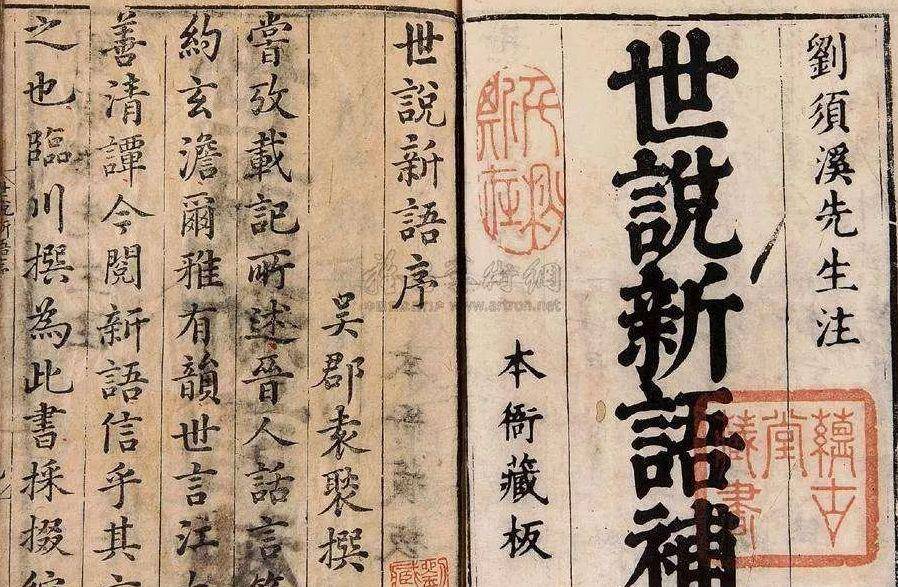 劉須溪先生注
世說新語補
古堂藏書
本衙藏板
世說新語序
吳郡袁褧撰
嘗攷載記所述晉人話言
約玄澹爾雅有韻世言江
善清譚今閱新語信乎其
之也臨川撰為此書採掇
www.artron.net